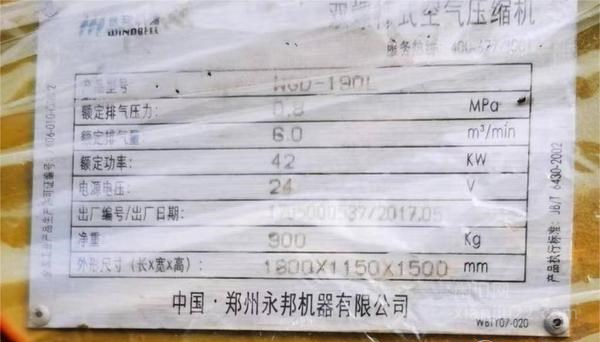 WINDBELL
双螺杆式空气压缩机
服务热线:
产品型号: WGD-190L
额定排气压力: 0.8 MPa
额定排气量: 6.0 m³/min
额定功率: 42 KW
电源电压: 24 V
出厂编号/出厂日期: 1705000537/2017.05
净重: 900 Kg
外形尺寸(长x宽x高): 1800X1150X1500 mm
中国·郑州永邦机器有限公司
WBTY07-020
产品执行标准: JB/T 6430-2002